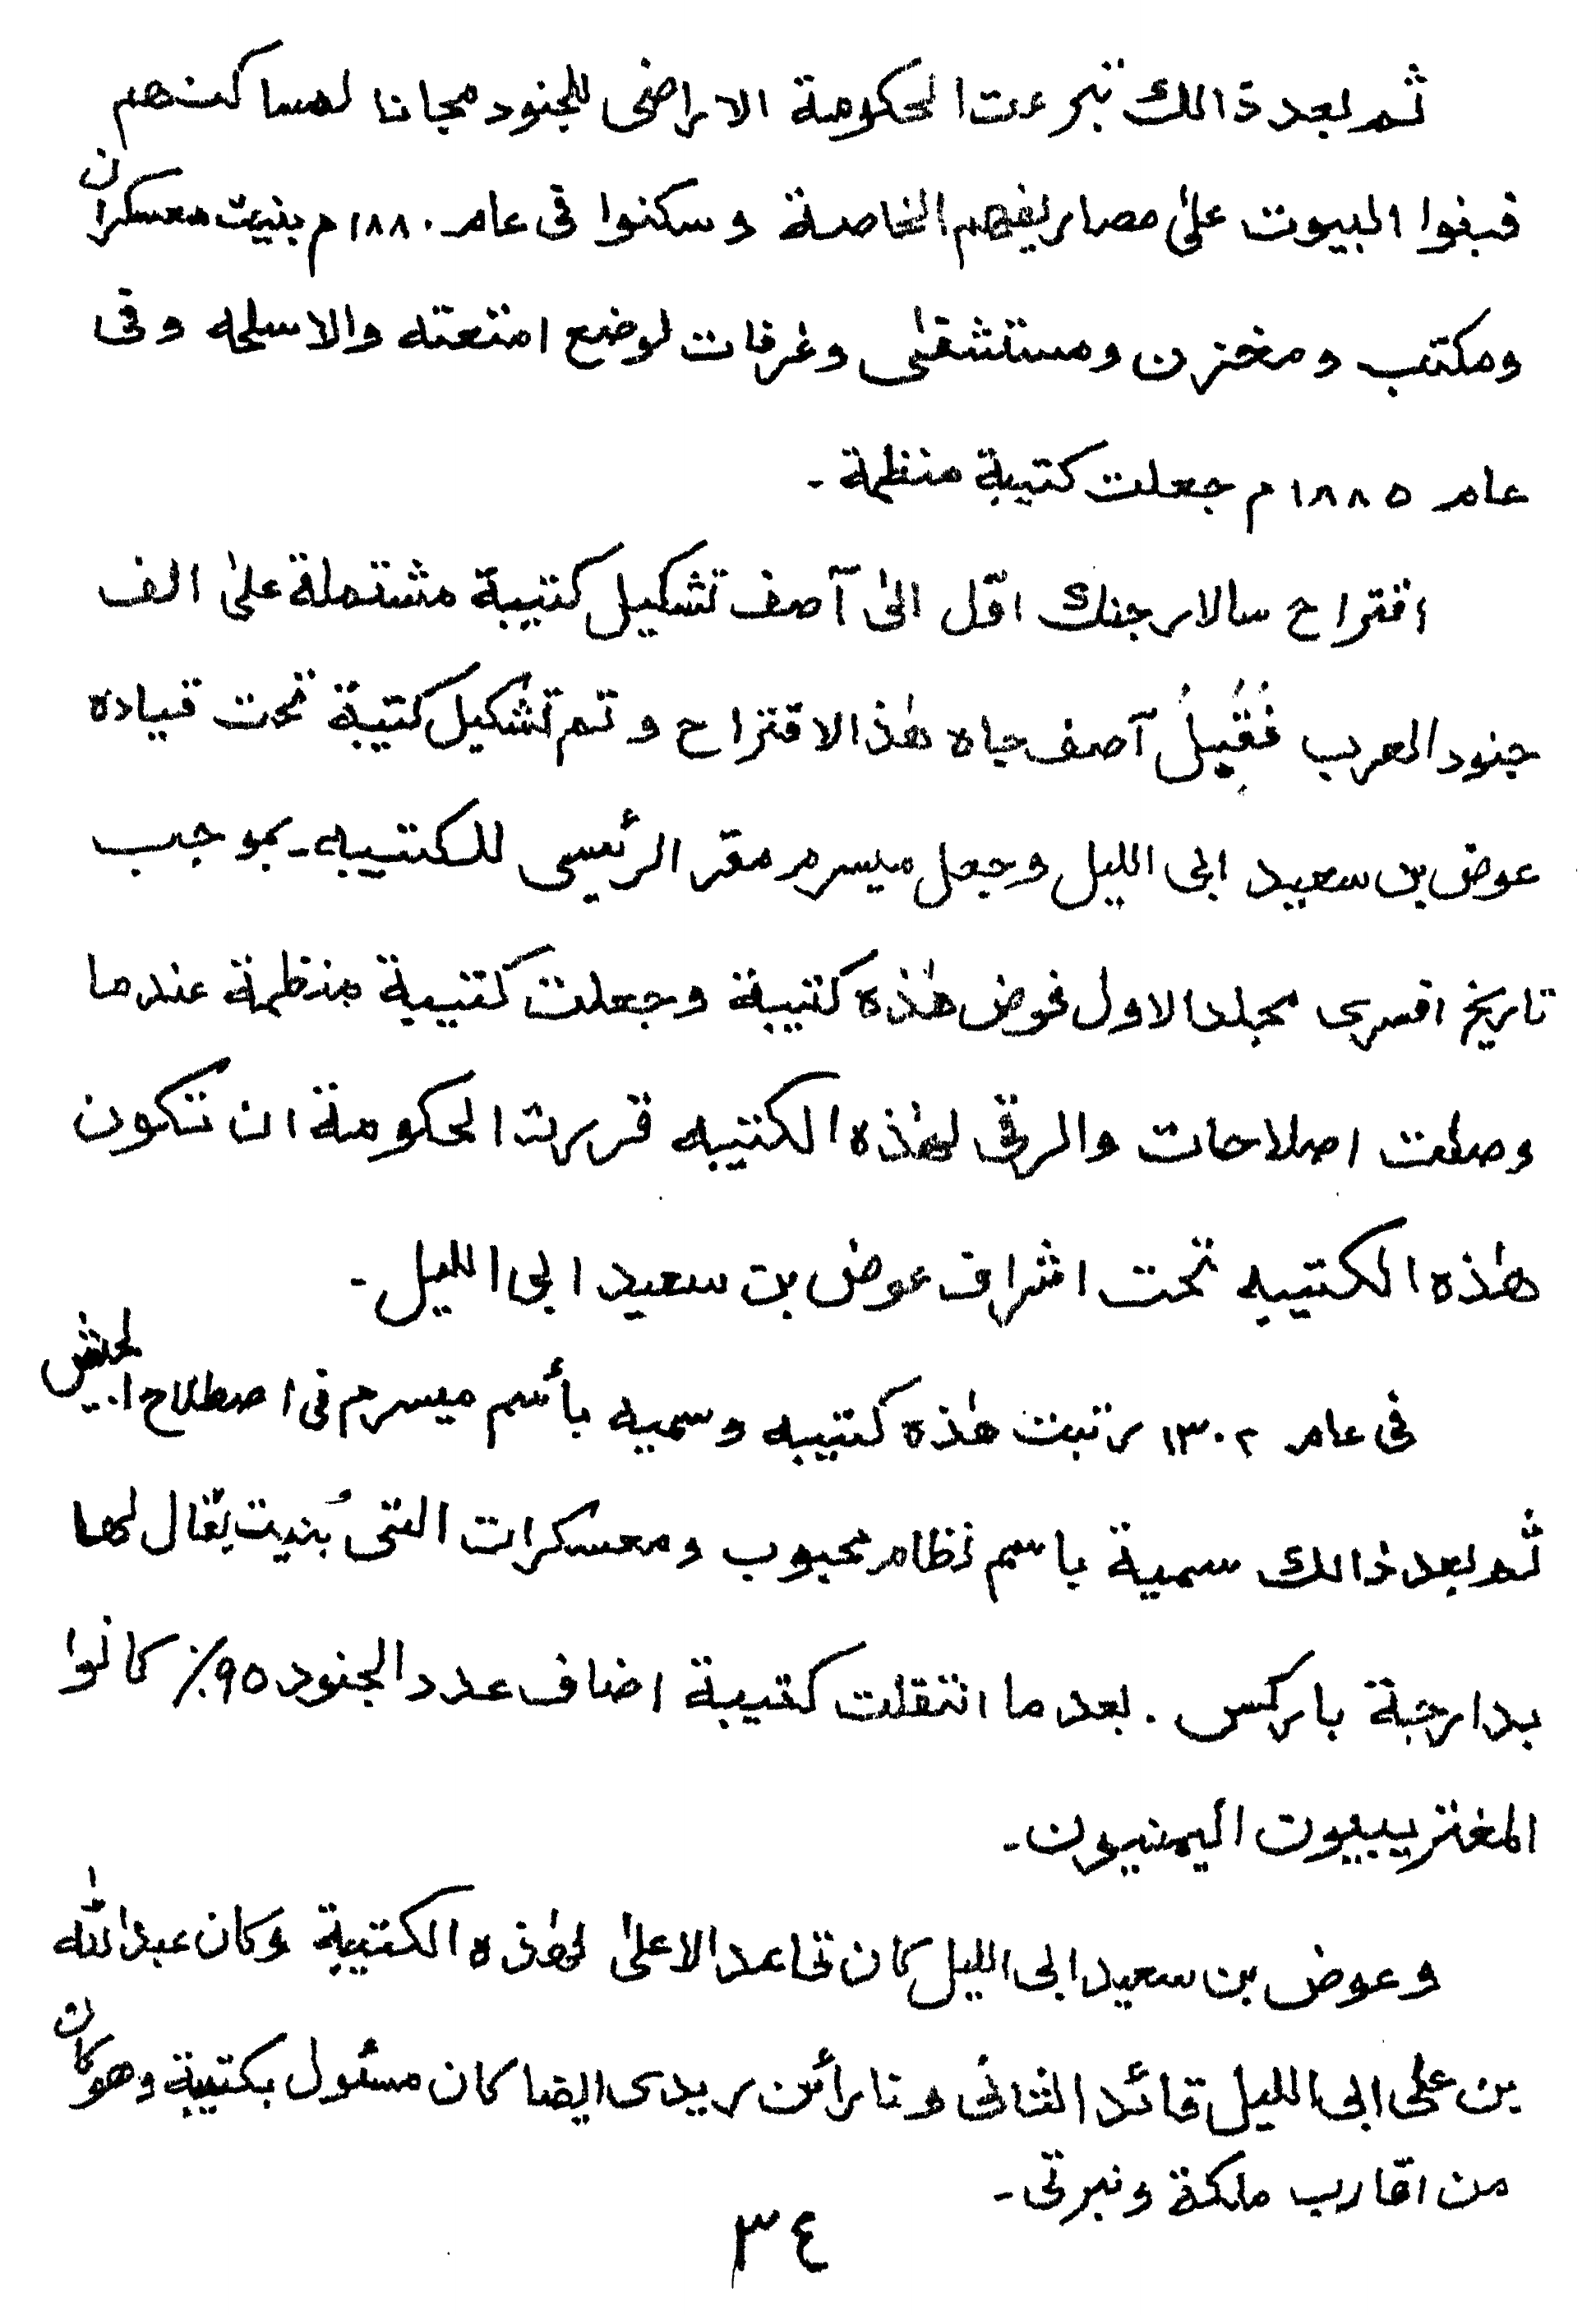 ثم بعد ذالك تبرعت الحكومة الاراضى للجنود مجانا لمساكنهم
فبنوا البيوت علىٰ مصاريفهم الخاصة وسكنوا فى عام ١٨٨٠م بنيت معسكران
ومكتب ومخزن ومستشفىٰ وغرفات لوضع امتعته والاسلحه وفى
عام ١٨٨٥م جعلت كتيبة منظمة۔
اقتراح سالار جنك اوّل الىٰ آصف تشكيل كتيبة مشتملة علىٰ الف
جنود العرب فَقُبِلُ آصف جاه هٰذا الاقتراح وتم تشكيل كتيبة تحت قيادة
عوض بن سعيد ابى الليل وجعل ميسرم مقر الرئيسى للكتيبه۔ بموجب
تاريخ افسرى مجلد الاول فوض هٰذه كتيبة وجعلت كتيبة منظمة عندما
وصلت اصلاحات والرقى لهٰذه الكتيبه قررت الحكومة ان تكون
هٰذه الكتيبه تحت اشراف عوض بن سعيد ابى الليل۔
فى عام ١٣٠٢ رتبت هٰذه كتيبه وسميه بأسم ميسرم فى اصطلاح
ثم بعد ذالك سمية باسم نظام محبوب ومعسكرات التى بُنيت يقال لها
بدارجة باركس. بعد ما انتقلت كتيبة اضاف عدد الجنود ٩٥٪ كانوا
المغتريبيون اليمنيون۔
وعوض بن سعيد ابى الليل كان قاعد الاعلىٰ لهٰذه الكتيبة وكان عبدالله
بن على ابى الليل قائد الثانى ونارائن ريدى ايضا كان مسئول بكتيبة وهو كان
من اقارب ملكة ونبرتى۔
٣٤